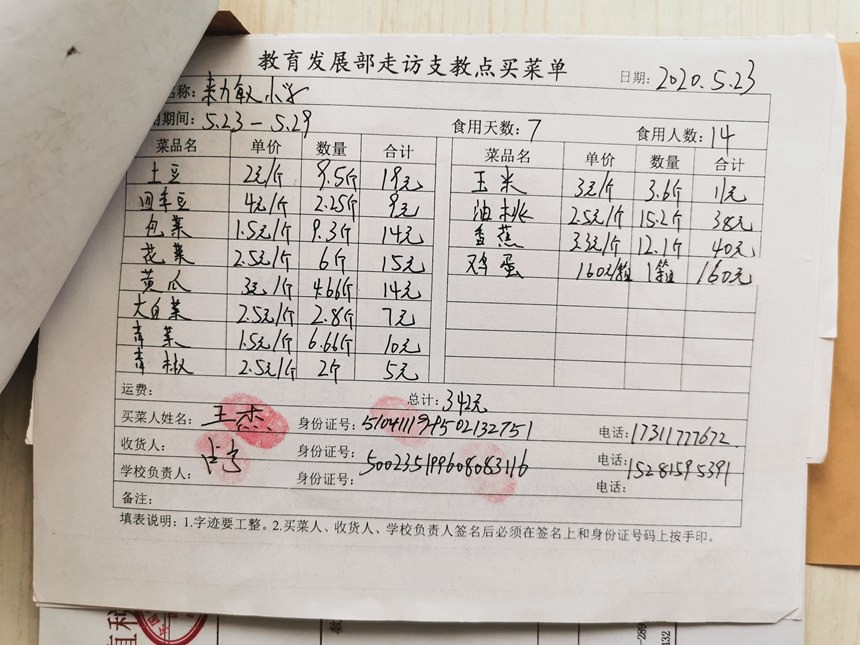 教育发展部走访支教点买菜单
日期: 2020.5.23
名称: 小学
用期间: 5.23-5.29 食用天数: 7 食用人数: 14
菜品名 单价 数量 合计 菜品名 单价 数量 合计
土豆 2元/斤 9.5斤 19元 玉米 3元/斤 3.6斤 11元
四季豆 4元/斤 2.25斤 9元 油桃 2.5元/斤 15.2斤 38元
包菜 1.5元/斤 9.3斤 14元 香蕉 3.3元/斤 12.1斤 40元
花菜 2.5元/斤 6斤 15元 鸡蛋 160元/箱 1箱 160元
黄瓜 3元/斤 4.66斤 14元
大白菜 2.5元/斤 2.8斤 7元
青菜 1.5元/斤 6.66斤 10元
青椒 2.5元/斤 2斤 5元
运费: 总计: 342元
买菜人姓名: 王杰 身份证号: 电话: 17311777672
收货人: 身份证号: 500235199608083116 电话: 15281595391
学校负责人: 身份证号: 电话:
备注:
填表说明: 1.字迹要工整。2.买菜人、收货人、学校负责人签名后必须在签名上和身份证号码上按手印。